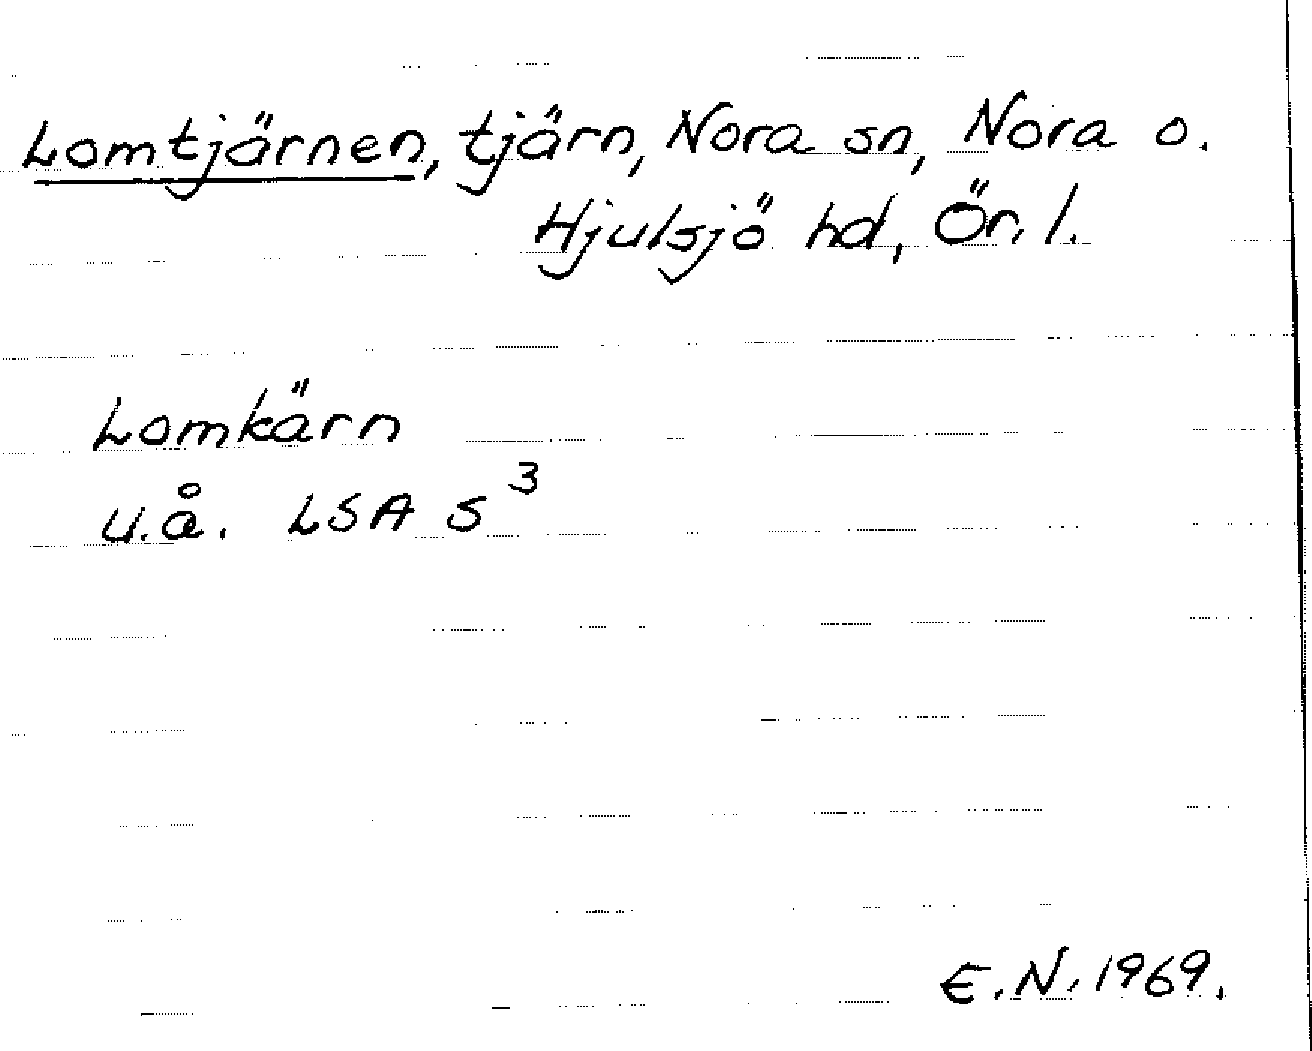 Lomtjärnen, tjärn, Nora sn, Nora o.
Hjulsjö hd, Ör. l.
Lomkärn
u.å. LSA S³
E.N. 1969.